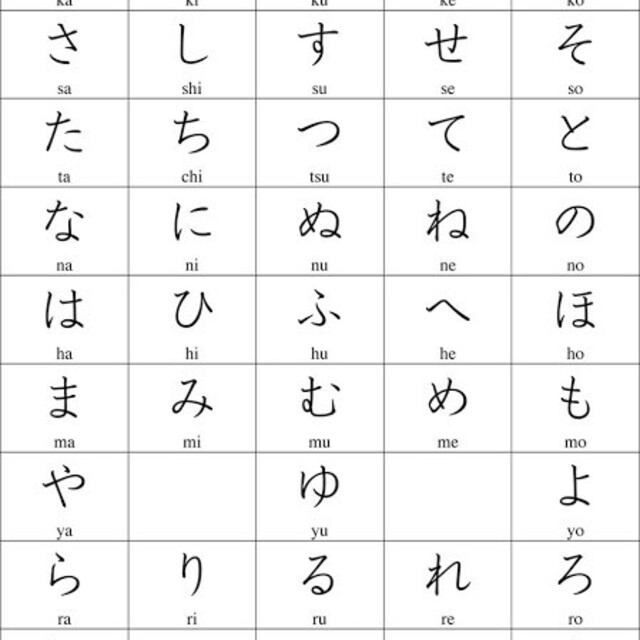 ka ki ku ke ko
さ し す せ そ
sa shi su se so
た ち つ て と
ta chi tsu te to
な に ぬ ね の
na ni nu ne no
は ひ ふ へ ほ
ha hi hu he ho
ま み む め も
ma mi mu me mo
や ゆ よ
ya yu yo
ら り る れ ろ
ra ri ru re ro